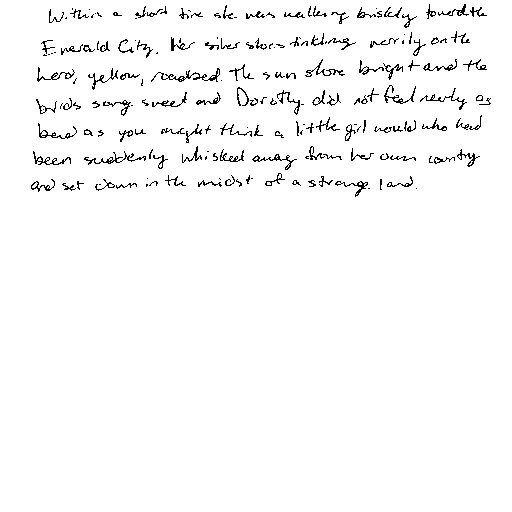 Within a short time she was walking briskly toward the
Emerald City. Her silver shoes tinkling merrily on the
hard, yellow, roadbed. The sun shone bright and the
birds song sweet and Dorothy did not feel nearly as
bad as you might think a little girl would who had
been suddenly whisked away from her own country
and set down in the midst of a strange land.